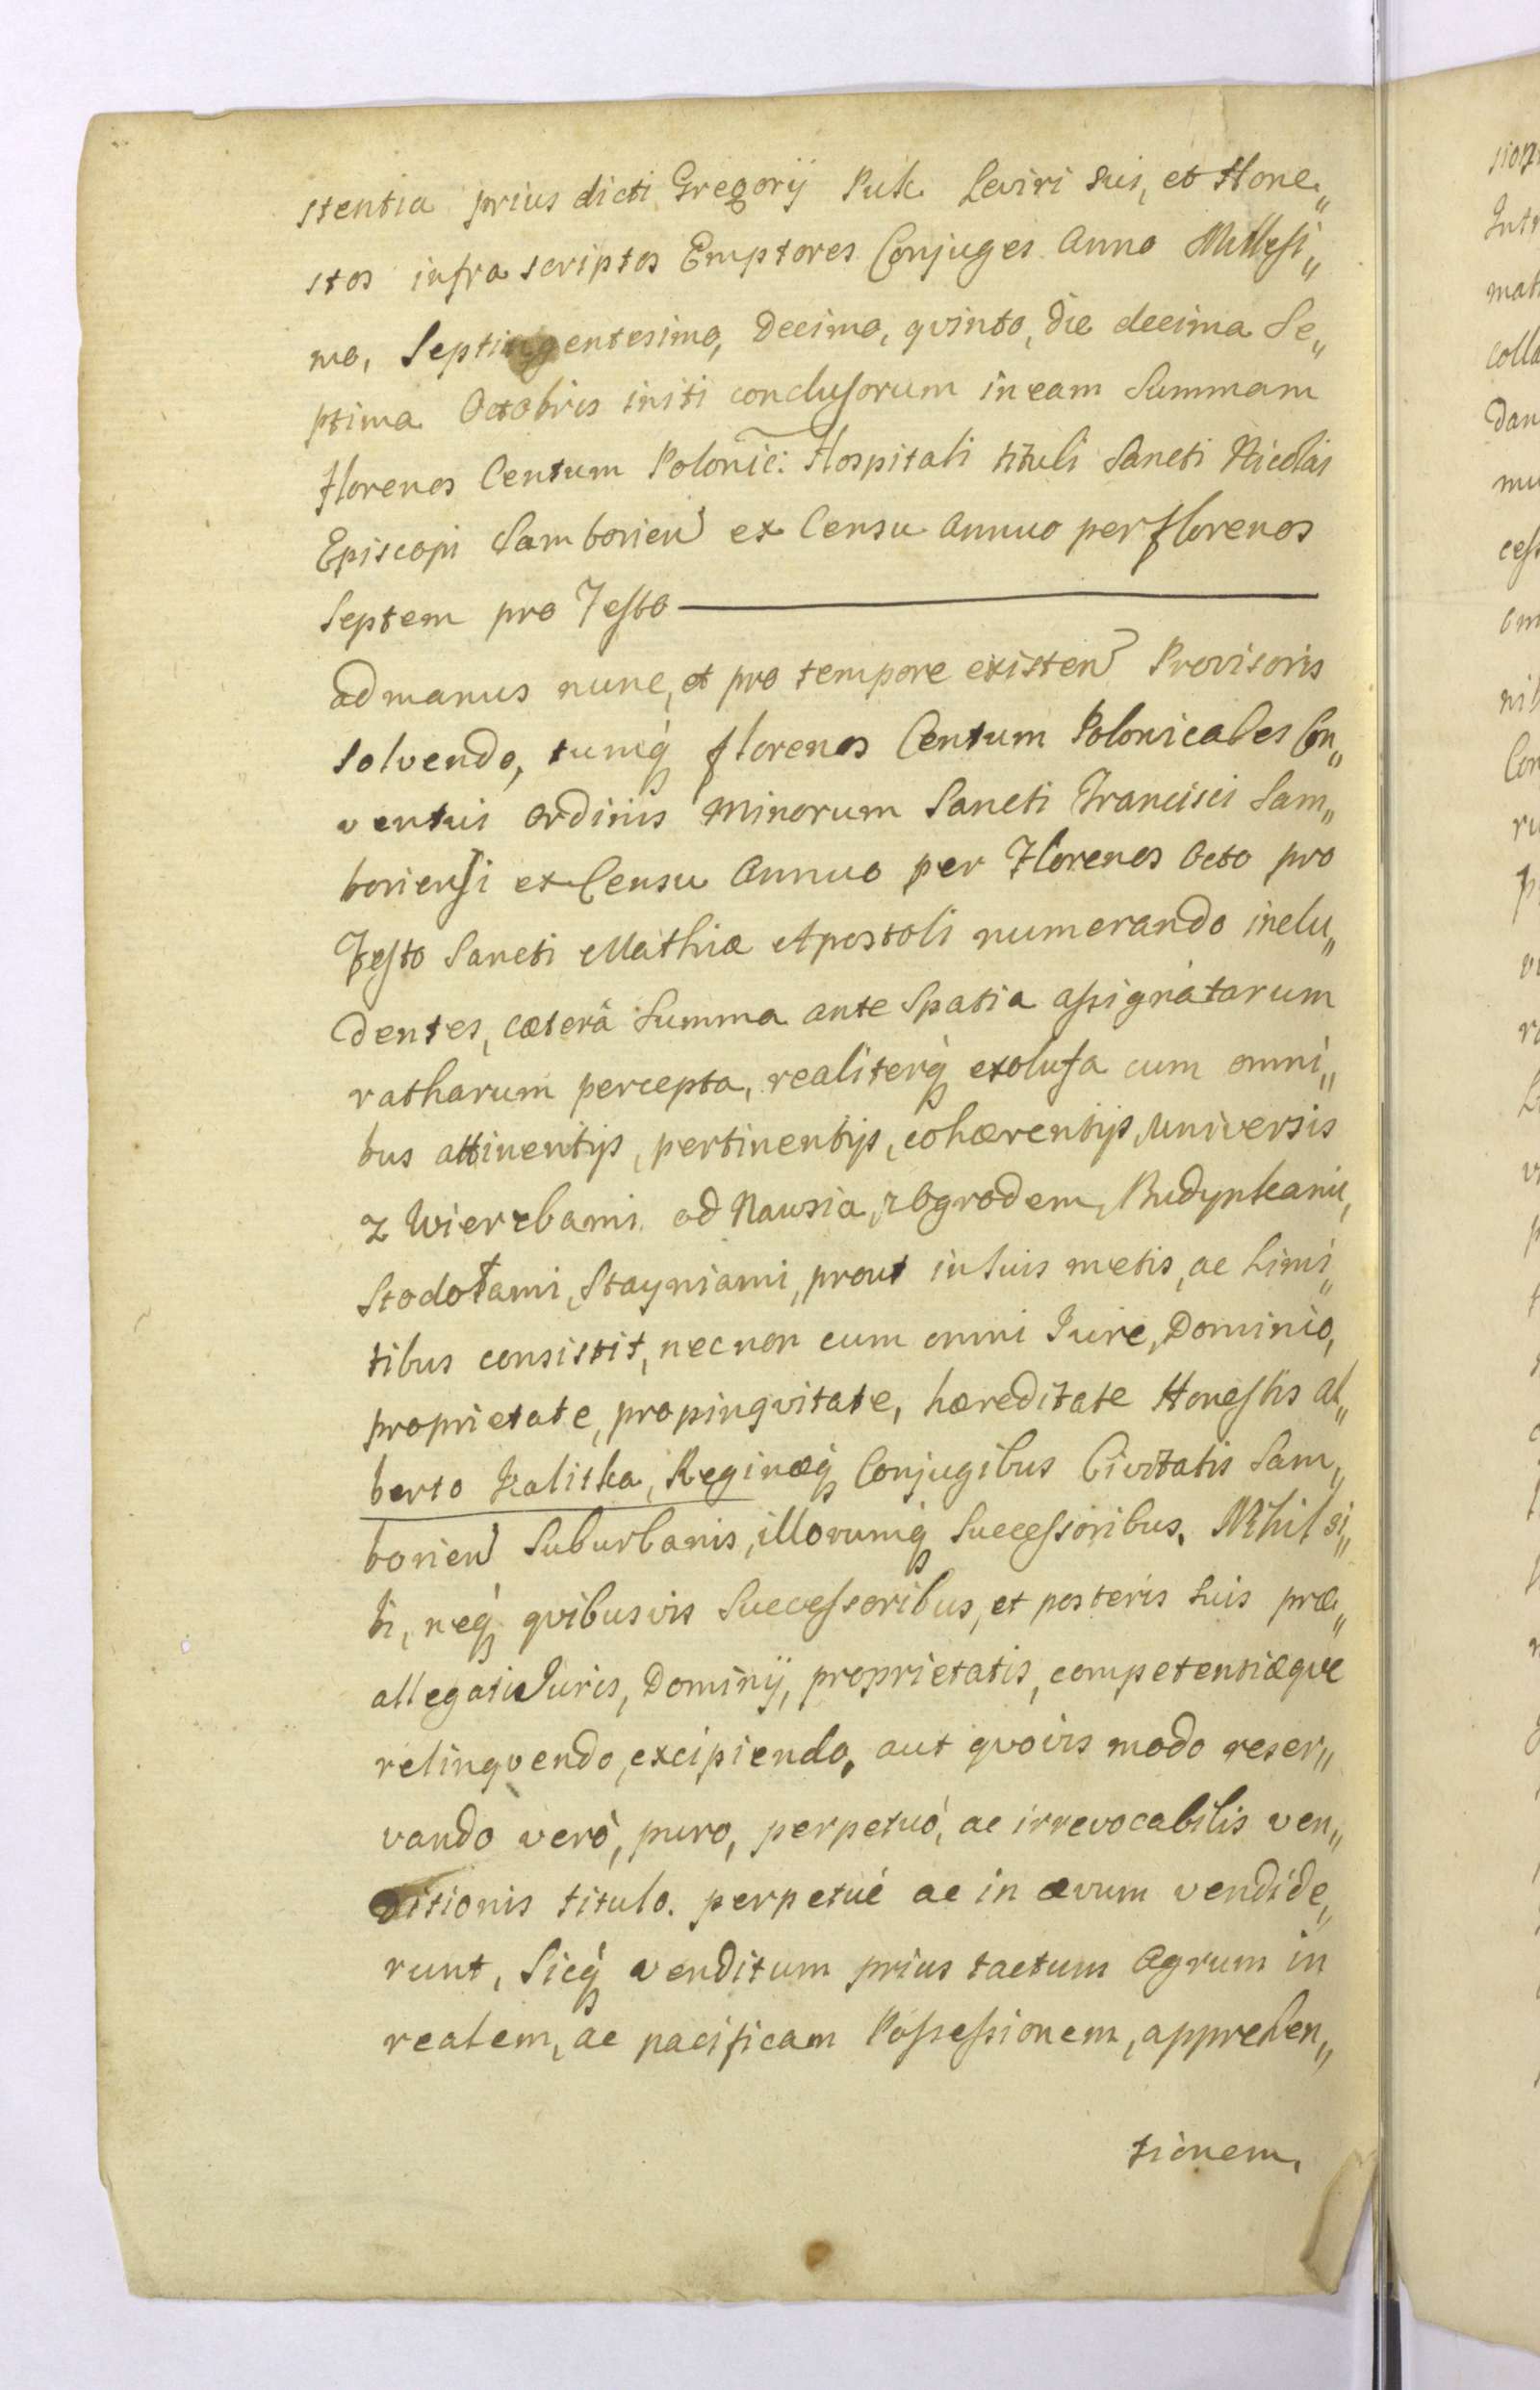 stentia prius dicti Gregorij Puk Leviri sui, et Hone„
stos infra scriptos Emptores Conjuges Anno Millesi„
mo, Septingentesimo, Decimo, qvinto, die decima Se„
ptima Octobris initi conclusorum in eam Summam
florenos Centum Polonic: Hospitali tituli Sancti Nicolai
Episcopi Samborien ex Censu annuo per florenos
Septem pro Festo
ad manus nunc, et pro tempore existen Provisoris
solvendo, tumq florenos Centum Polonicales Con„
ventui ordinis Minorum Sancti Francisci Sam„
boriensi ex Censu Annuo per Florenos Octo pro
Festo Sancti Mathiæ Apostoli numerando inclu„
dentes, cæterâ Summa ante Spatia assignatarum
ratharum percepta, realiterq exoluta cum omni„
bus attinentijs, pertinentijs, cohærentijs, universis
z Wierzbami od Nawsia, z Ogrodem, Budynkami,
Stodołami, Stayniami, prout in suis metis, ac Limi„
tibus consistit, nec non cum omni Jure, Dominio,
proprietate, propinqvitate, hæreditate Honestis Al„
berto Kalitka, Reginæq Conjugibus Civitatis Sam„
borien Suburbanis, illorumq Successoribus. Nihil si„
bi, neq qvibusvis Successoribus, et posteris suis præ„
allegati Juris, Dominij, proprietatis, competentiæque
relinqvendo, excipiendo, aut qvovis modo reser„
vando verò, puro, perpetuò, ac irrevocabilis ven„
ditionis titulo. perpetuè ac in ævum vendide„
runt, Sicq venditum prius tactum Agrum in
realem, ac pacificam Possessionem, apprehen„
tionem,